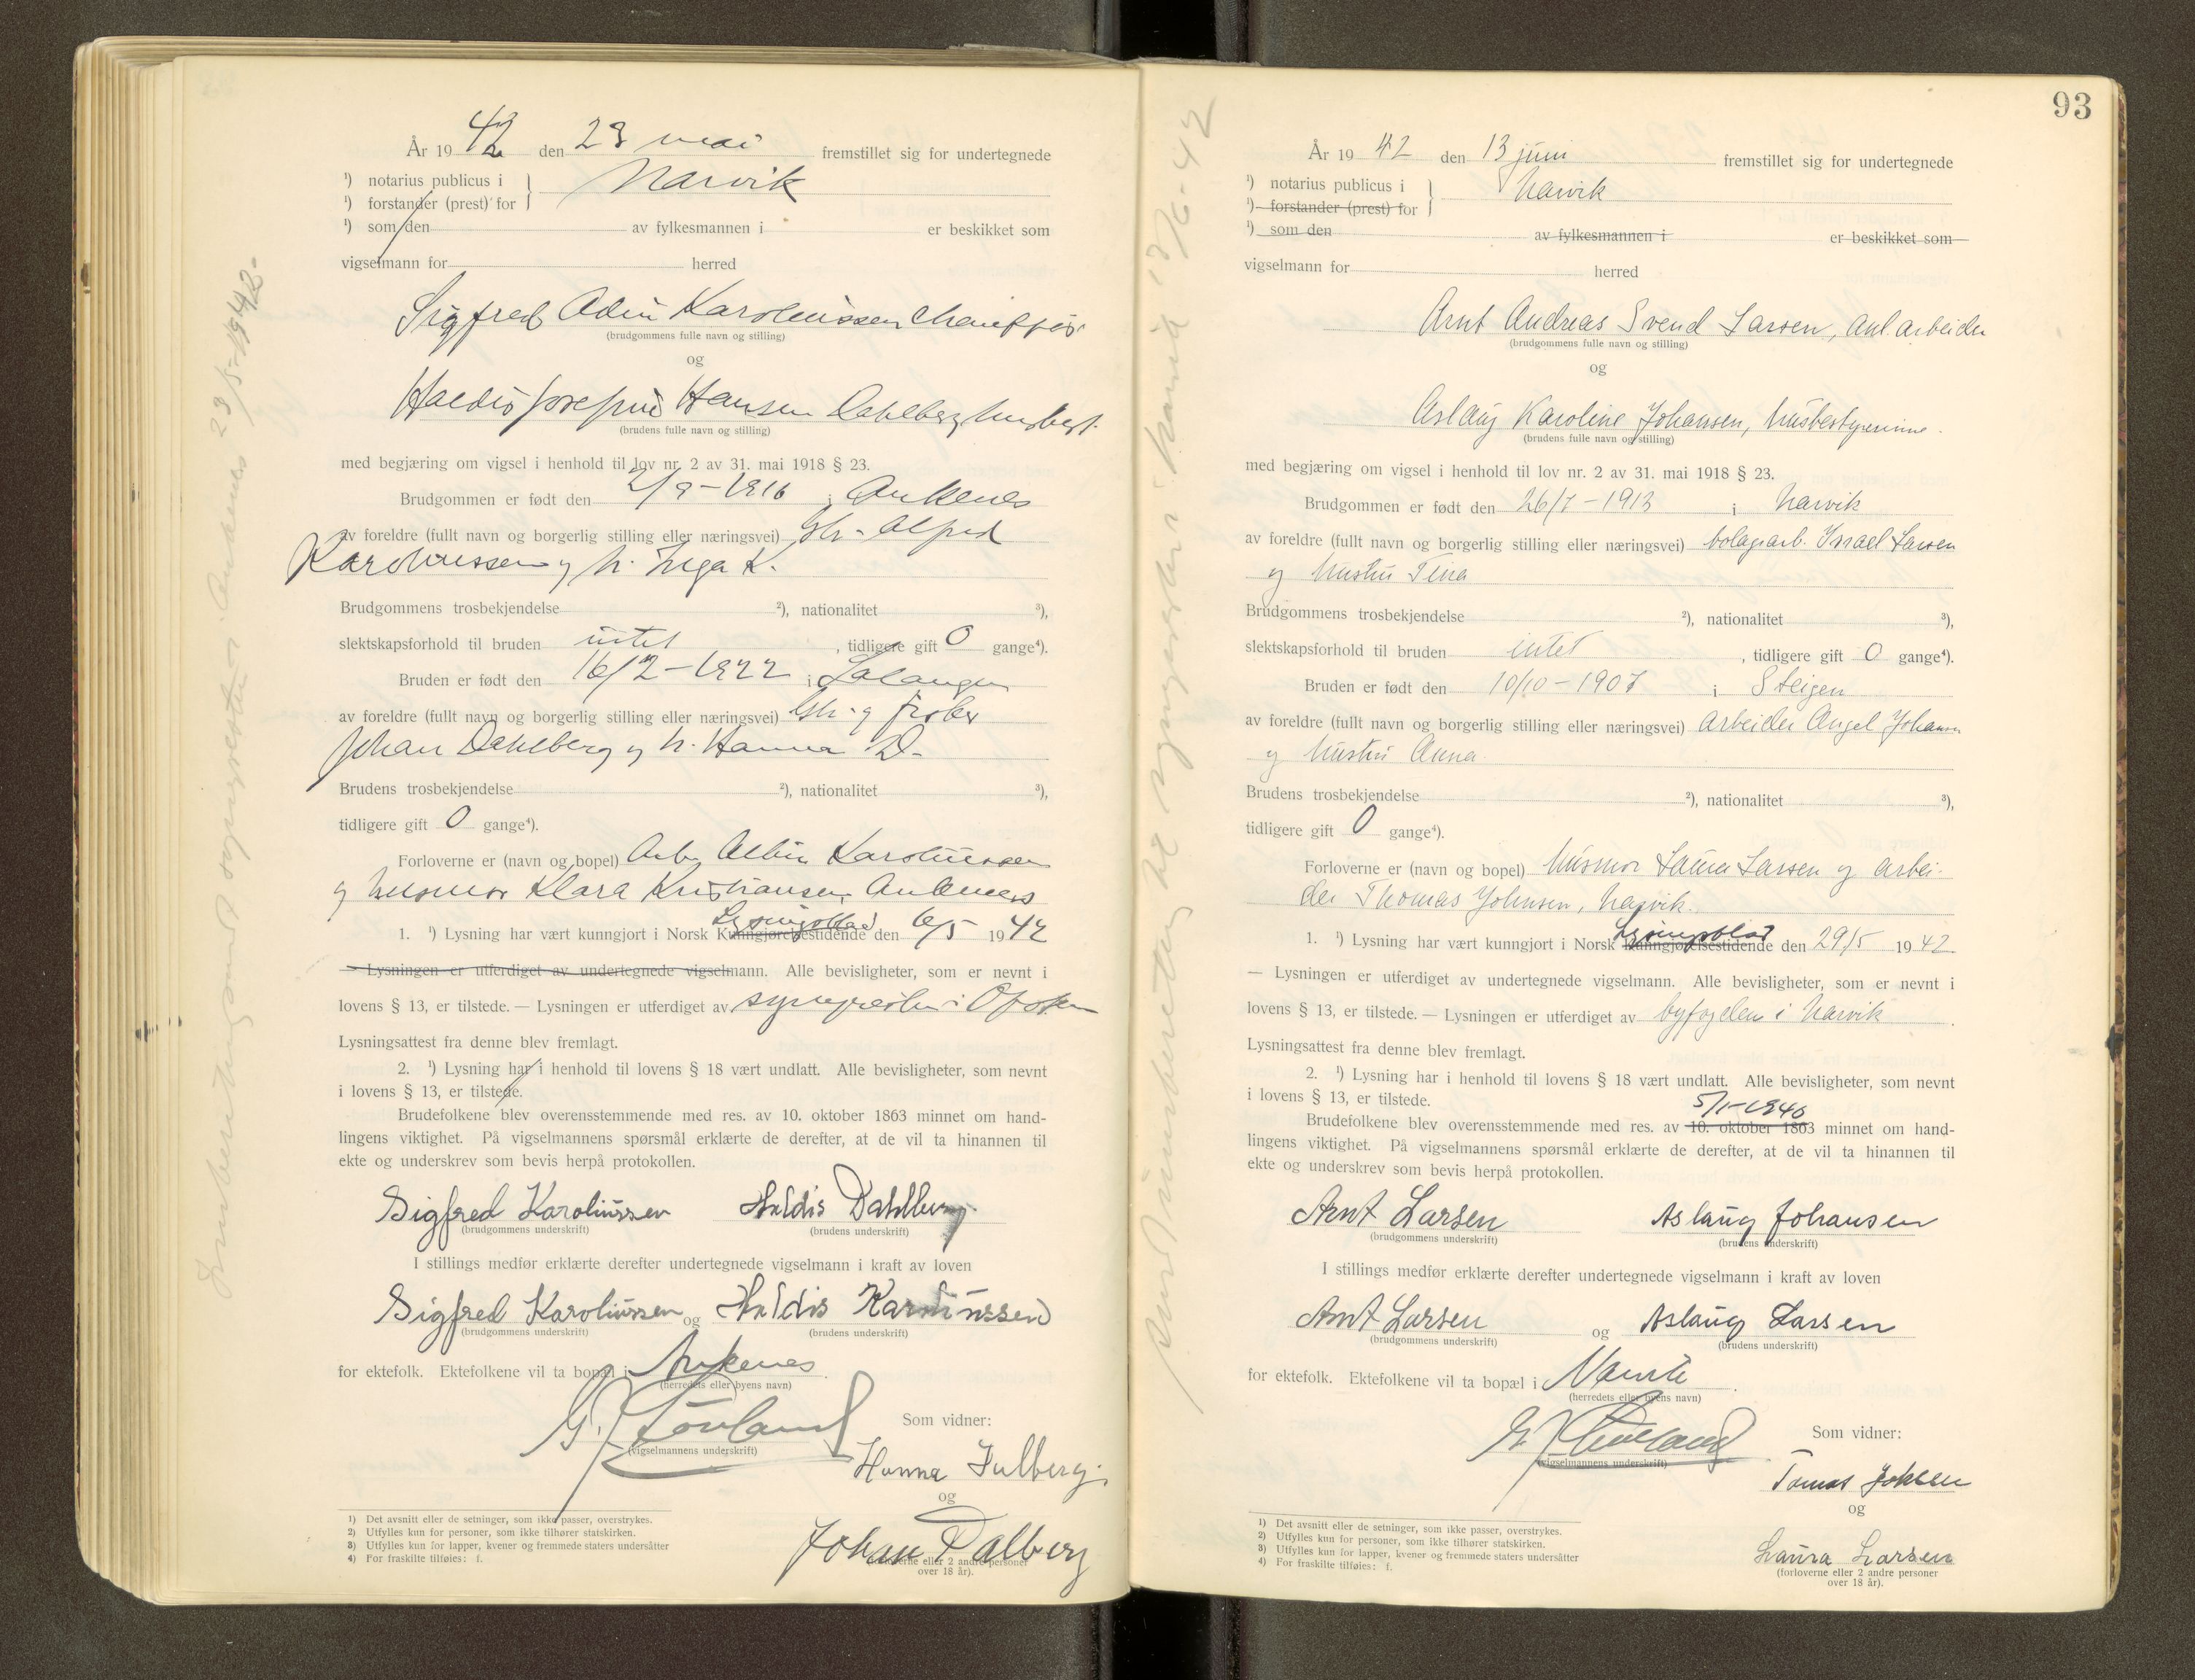 År 1942 den 23 mai fremstillet sig for undertegnede
¹) notarius publicus i } Narvik
¹) forstander (prest) for
¹) som den av fylkesmannen i er beskikket som
vigselmann for herred
Sigfred Odin Karoliussen Chauffør
(brudgommens fulle navn og stilling)
og
Haldis Josefine Hansen Dahlberg, husbest.
(brudens fulle navn og stilling)
med begjæring om vigsel i henhold til lov nr. 2 av 31. mai 1918 § 23.
Brudgommen er født den 2/9-1916 i Ankenes
av foreldre (fullt navn og borgerlig stilling eller næringsvei) Gbr. Alfred
Karoliussen og h. Inga K.
Brudgommens trosbekjendelse ²), nationalitet ³),
slektskapsforhold til bruden intet, tidligere gift 0 gange⁴).
Bruden er født den 16/2-1922 i Salangen
av foreldre (fullt navn og borgerlig stilling eller næringsvei) Gbr. og fisker
Johan Dahlberg og h. Hanna D.
Brudens trosbekjendelse ²), nationalitet ³),
tidligere gift 0 gange⁴).
Forloverne er (navn og bopel) Arb. Albin Karoliussen
og husmor Klara Kristiansen, Ankenes
Lysningsblad
1. ¹) Lysning har vært kunngjort i Norsk Kunngjørelsestidende den 6/5 1942
— Lysningen er utferdiget av undertegnede vigselmann. Alle bevisligheter, som er nevnt i
lovens § 13, er tilstede. — Lysningen er utferdiget av sorenskriveren i Ofoten
Lysningsattest fra denne blev fremlagt.
2. ¹) Lysning har i henhold til lovens § 18 vært undlatt. Alle bevisligheter, som nevnt
i lovens § 13, er tilstede.
Brudefolkene blev overensstemmende med res. av 10. oktober 1863 minnet om hand-
lingens viktighet. På vigselmannens spørsmål erklærte de derefter, at de vil ta hinannen til
ekte og underskrev som bevis herpå protokollen.
Sigfred Karoliussen Haldis Dahlberg.
(brudgommens underskrift) (brudens underskrift)
I stillings medfør erklærte derefter undertegnede vigselmann i kraft av loven
Sigfred Karoliussen og Haldis Karoliussen
(brudgommens underskrift) (brudens underskrift)
for ektefolk. Ektefolkene vil ta bopæl i Ankenes.
(herredets eller byens navn)
(vigselmannens underskrift)
Som vidner:
Hanna Dalberg.
og
Johan Dalberg
(forloverne eller 2 andre personer
over 18 år).
1) Det avsnitt eller de setninger, som ikke passer, overstrykes.
2) Utfylles kun for personer, som ikke tilhører statskirken.
3) Utfylles kun for lapper, kvener og fremmede staters undersåtter
4) For fraskilte tilføies: f.
93
År 1942 den 13 juni fremstillet sig for undertegnede
¹) notarius publicus i } Narvik
¹) forstander (prest) for
¹) som den av fylkesmannen i er beskikket som
vigselmann for herred
Arnt Andreas Svend Larsen, anl.arbeider
(brudgommens fulle navn og stilling)
og
Aslaug Karoline Johansen, husbestyrerinne.
(brudens fulle navn og stilling)
med begjæring om vigsel i henhold til lov nr. 2 av 31. mai 1918 § 23.
Brudgommen er født den 26/7-1913 i Narvik
av foreldre (fullt navn og borgerlig stilling eller næringsvei) bolagsarb. Israel Larsen
og hustru Tina
Brudgommens trosbekjendelse ²), nationalitet ³),
slektskapsforhold til bruden intet, tidligere gift 0 gange⁴).
Bruden er født den 10/10-1907 i Steigen
av foreldre (fullt navn og borgerlig stilling eller næringsvei) arbeider Angel Johansen
og hustru Anna
Brudens trosbekjendelse ²), nationalitet ³),
tidligere gift 0 gange⁴).
Forloverne er (navn og bopel) husmor Laura Larsen og arbei-
der Thomas Johnsen, Narvik.
Lysningsblad
1. ¹) Lysning har vært kunngjort i Norsk Kunngjørelsestidende den 29/5 1942
— Lysningen er utferdiget av undertegnede vigselmann. Alle bevisligheter, som er nevnt i
lovens § 13, er tilstede. — Lysningen er utferdiget av byfogden i Narvik.
Lysningsattest fra denne blev fremlagt.
2. ¹) Lysning har i henhold til lovens § 18 vært undlatt. Alle bevisligheter, som nevnt
i lovens § 13, er tilstede.
5/1-1940
Brudefolkene blev overensstemmende med res. av 10. oktober 1863 minnet om hand-
lingens viktighet. På vigselmannens spørsmål erklærte de derefter, at de vil ta hinannen til
ekte og underskrev som bevis herpå protokollen.
Arnt Larsen Aslaug Johansen
(brudgommens underskrift) (brudens underskrift)
I stillings medfør erklærte derefter undertegnede vigselmann i kraft av loven
Arnt Larsen og Aslaug Larsen
(brudgommens underskrift) (brudens underskrift)
for ektefolk. Ektefolkene vil ta bopæl i Narvik.
(herredets eller byens navn)
(vigselmannens underskrift)
Som vidner:
Tomas Johnsen
og
Laura Larsen
(forloverne eller 2 andre personer
over 18 år).
1) Det avsnitt eller de setninger, som ikke passer, overstrykes.
2) Utfylles kun for personer, som ikke tilhører statskirken.
3) Utfylles kun for lapper, kvener og fremmede staters undersåtter
4) For fraskilte tilføies: f.